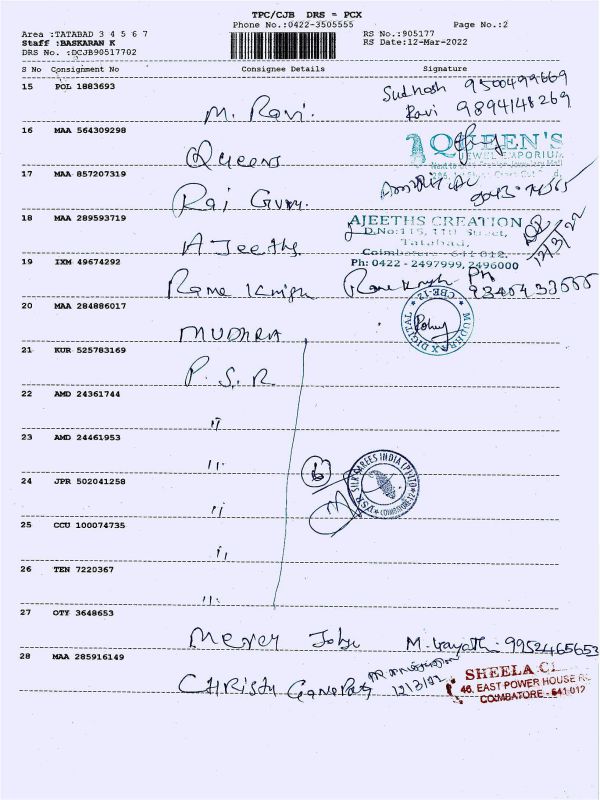 TPC/CJB DRS = PCX
Phone No.:0422-3505555 Page No.:2
Area :TATABAD 3 4 5 6 7 RS No.:905177
Staff :BASKARAN K RS Date:12-Mar-2022
DRS No. :DCJB90517702
S No Consignment No Consignee Details Signature
15 POL 1883693
M. Ravi. Ravi 9894148269
16 MAA 564309298
Queens QUEEN'S
JEWEL EMPORIUM
17 MAA 857207319
Raj Guru.
18 MAA 289593719 AJEETHS CREATION
D.No:115, 11th Street,
Tatabad,
AJeeths Coimbatore - 641 012.
Ph: 0422 - 2497999, 2496000
19 IXM 49674292
20 MAA 284886017
MUDHRA MUDHRAX DIGITAL CBE-12
21 KUR 525783169
P. S. R
22 AMD 24361744
"
23 AMD 24461953
"
24 JPR 502041258 6 SILK SAREES INDIA (P) LTD COIMBATORE-12
"
25 CCU 100074735
"
26 TEN 7220367
"
27 OTY 3648653
Mercy 9952465653
28 MAA 285916149
CHRISTU 12/3/22 SHEELA
46, EAST POWER HOUSE
COIMBATORE - 641 012